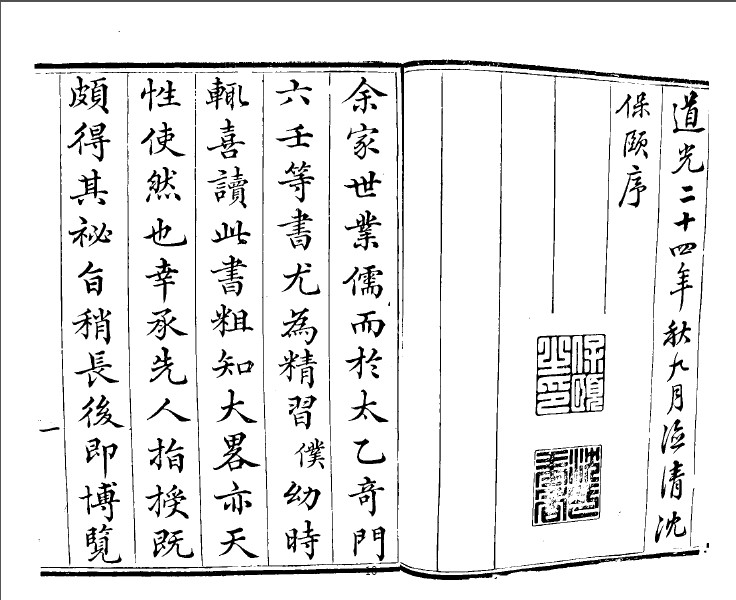 道光二十四年秋九月涖清沈
保頤序
余家世業儒而於太乙奇門
六壬等書尤為精習僕幼時
輒喜讀此書粗知大畧亦天
性使然也幸承先人指授既
頗得其祕自稍長後即博覽
一